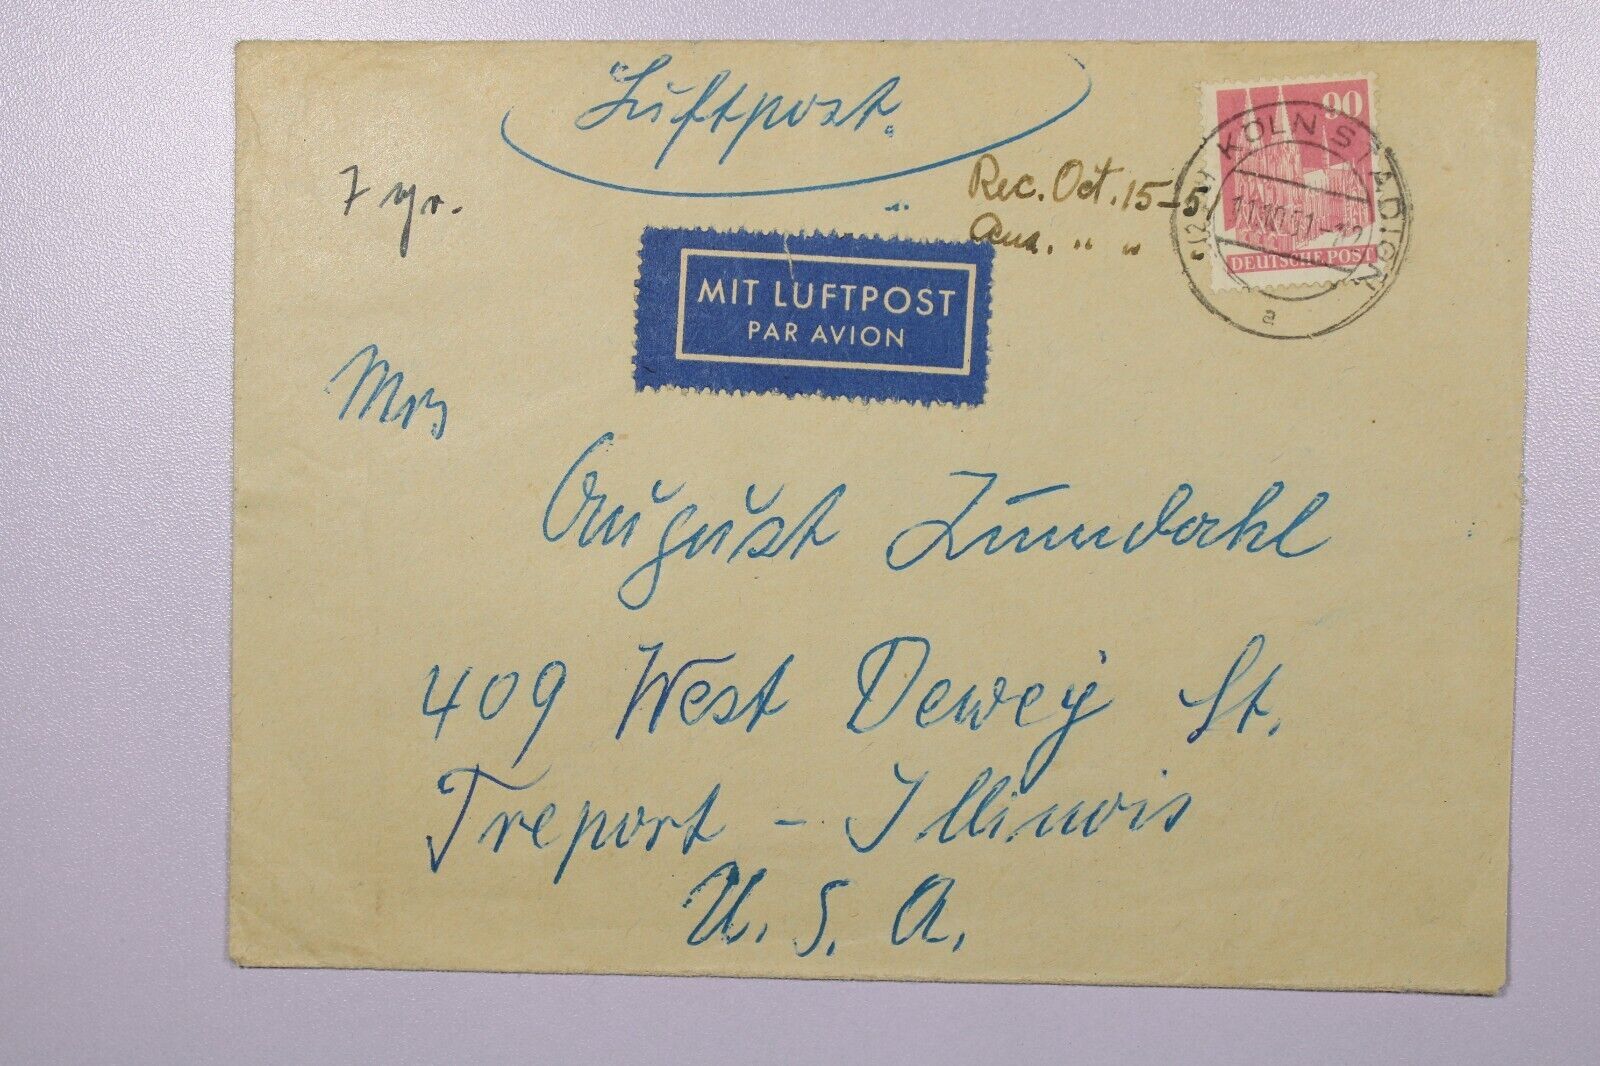 Luftpost
90
KÖLN STADION
11.10.51-12
DEUTSCHE POST
a
7 yr.
Rec. Oct. 15-51
Ans. " "
MIT LUFTPOST
PAR AVION
Mrs
August Lumdahl
409 West Dewey St.
Freport - Illinois
U. S. A.